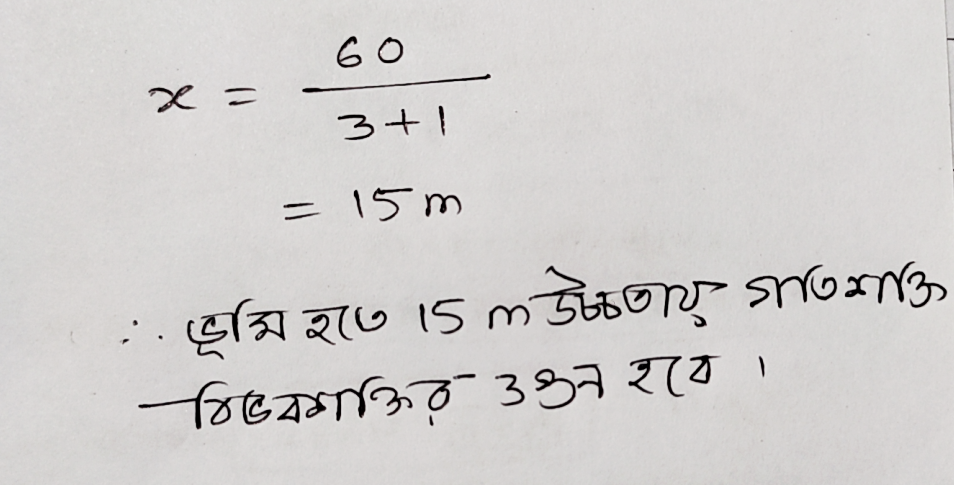 x = 60 / 3+1
= 15 m
∴ ভূমি হতে 15 m উচ্চতায় গতিশক্তি
বিভবশক্তির ৩ গুন হবে ।